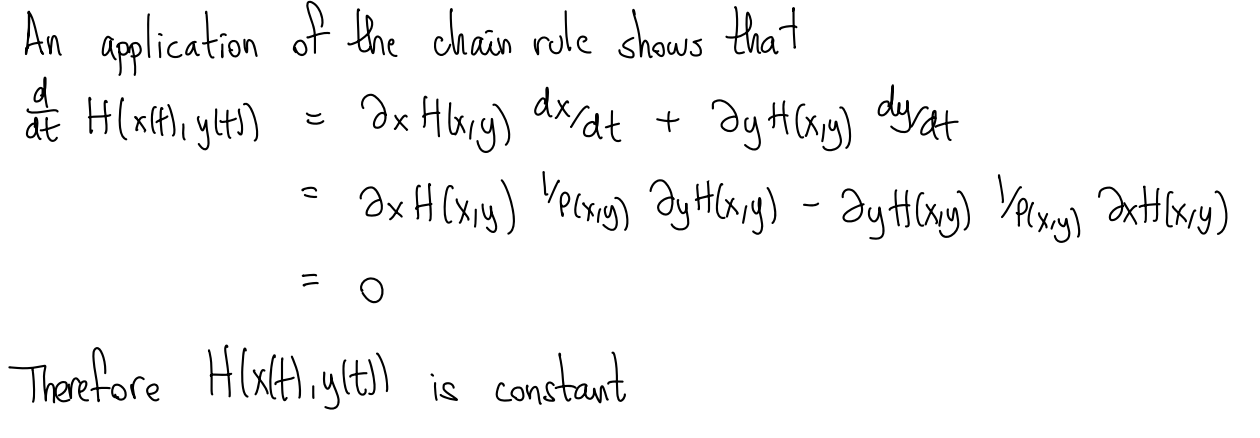 An application of the chain rule shows that
d/dt H(x(t), y(t)) = ∂x H(x,y) dx/dt + ∂y H(x,y) dy/dt
= ∂x H(x,y) 1/ρ(x,y) ∂y H(x,y) - ∂y H(x,y) 1/ρ(x,y) ∂x H(x,y)
= 0
Therefore H(x(t), y(t)) is constant